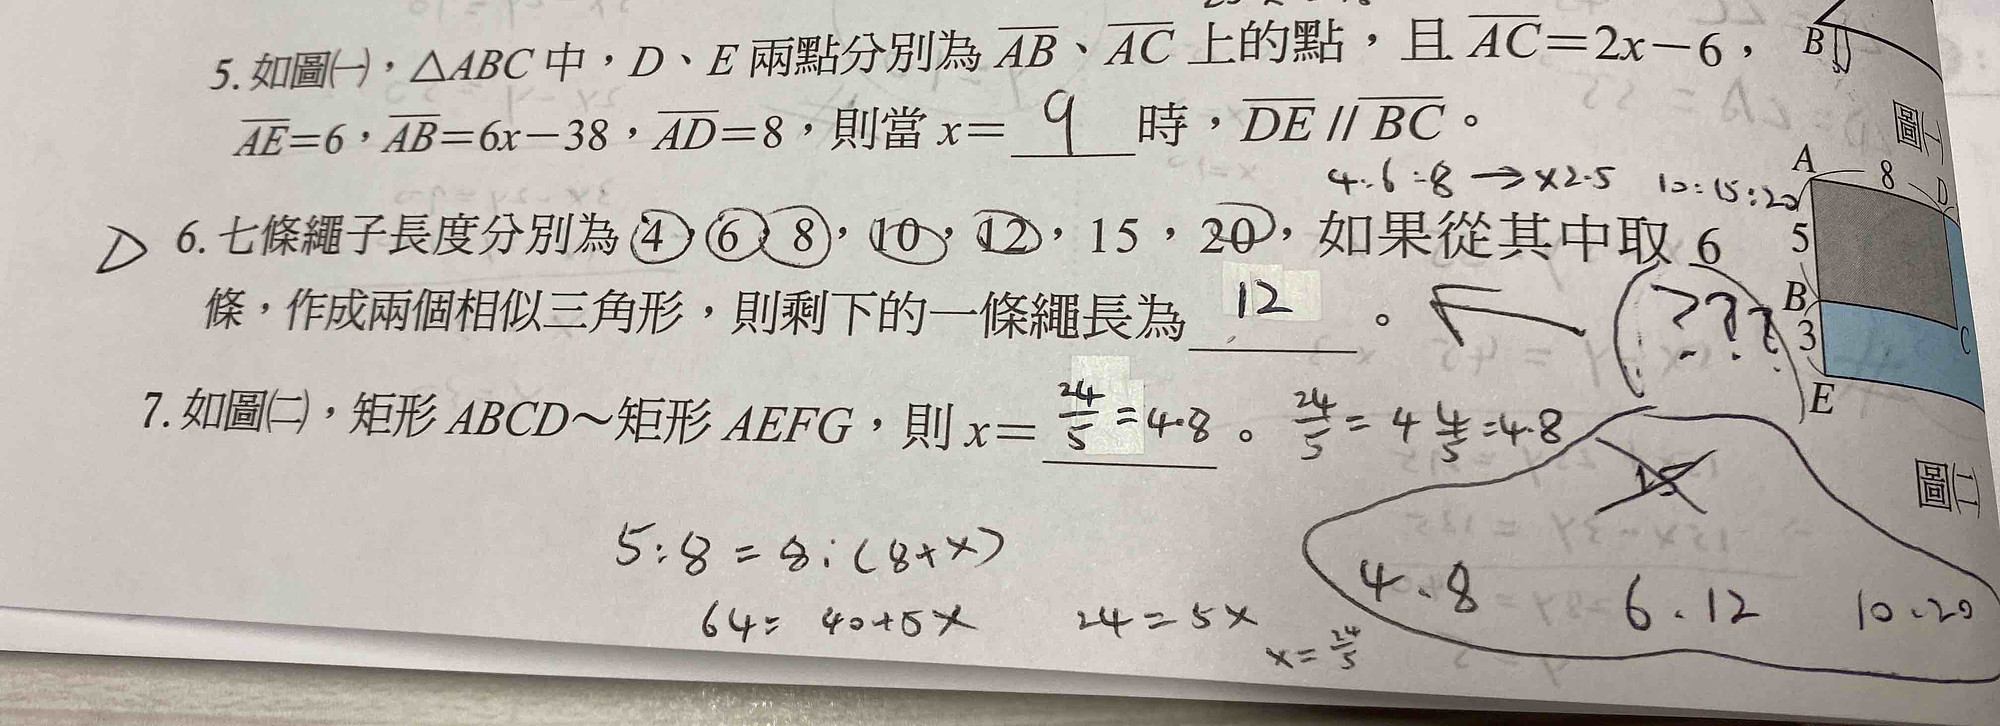 5. 如圖㈠，△ABC 中，D、E 兩點分別為 AB、AC 上的點，且 AC=2x-6，
AE=6，AB=6x-38，AD=8，則當 x= 9 時，DE // BC。
4:6:8 → x2.5 10:15:20
D 6. 七條繩子長度分別為 4，6，8，10，12，15，20，如果從其中取 6
條，作成兩個相似三角形，則剩下的一條繩長為 12 。
???
7. 如圖㈡，矩形 ABCD～矩形 AEFG，則 x= 24/5 =4.8 。 24/5 = 4 4/5 =4.8
5:8 = 8:(8+x)
64= 40+5x 24=5x
x= 24/5
15
4.8 6.12 10.20
B
圖㈠
A 8 D
5
B
3 C
E
圖㈡